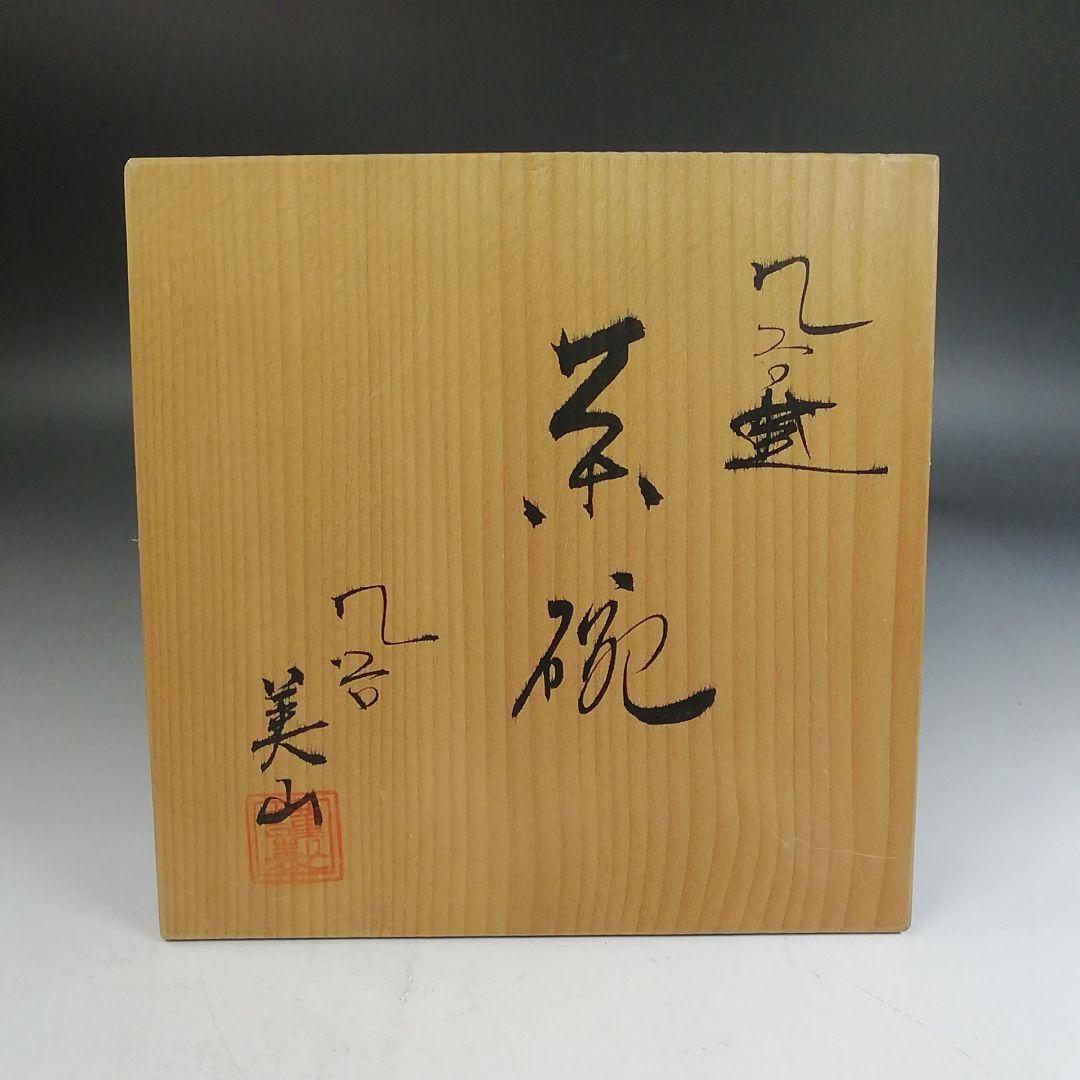 九谷焼
茶碗
九谷
美山